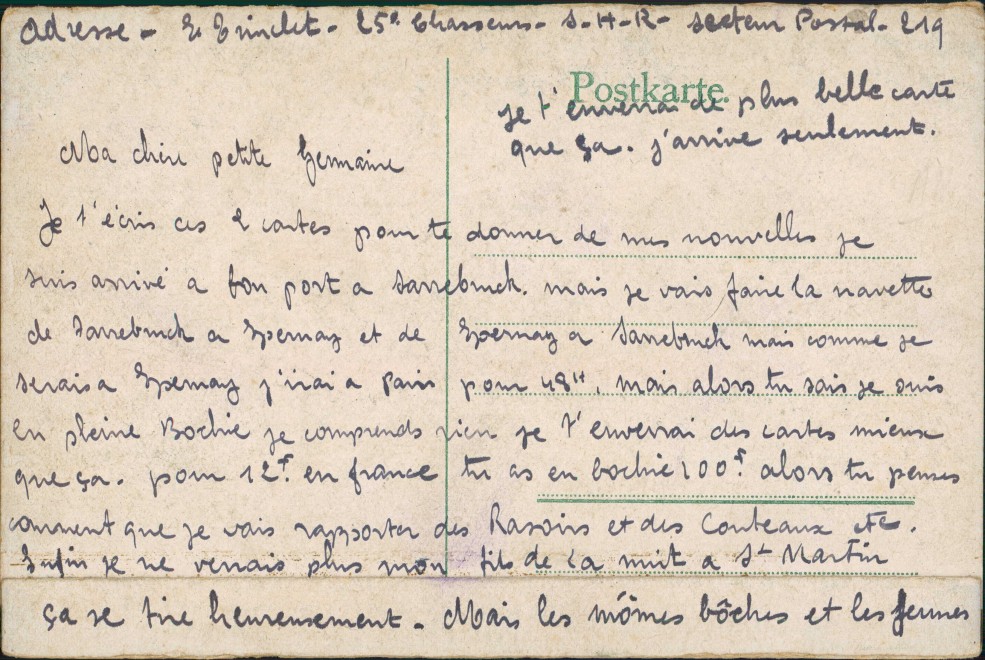 Adresse - E Trinclit - 25e Chasseurs - S-H-R- secteur Postal - 219
Postkarte.
je t'enverrai de plus belle carte
que ça. j'arrive seulement.
Ma chère petite Germaine
Je t'écris ces 2 cartes pour te donner de mes nouvelles je
suis arrivé a bon port a Sarrebruck. mais je vais faire la navette
de Sarrebruck a Epernay et de Epernay a Sarrebruck mais comme je
serais a Epernay j'irai a Paris pour 48H. mais alors tu sais je suis
en pleine Bochie je comprends rien je t'enverrai des cartes mieux
que ça. pour 12f. en france tu as en bochie 100f alors tu penses
comment que je vais rapporter des Rasoirs et des Couteaux etc.
Enfin je ne verrais plus mon fils de la nuit a St Martin
ça se tire heureusement. Mais les mômes bôches et les femmes